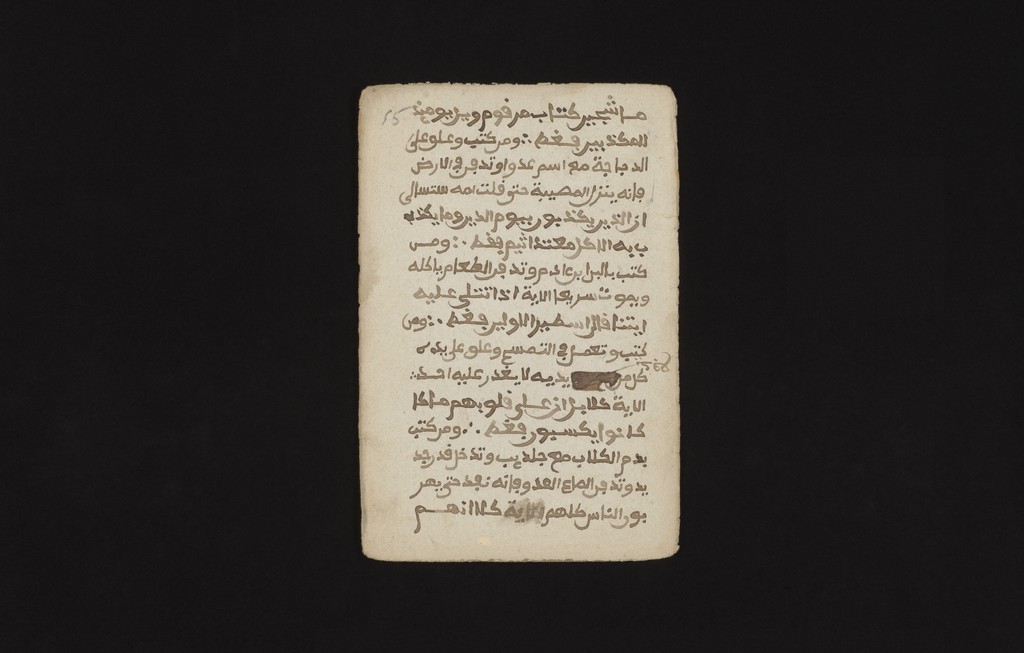 ما سجير كتاب مرقوم ويل يومئذ
للمكذبين فقط ∴ ومن كتب وعلو على
الدجاجة مع اسم عدو او تدفن في الارض
فإنه ينزل المصيبة حتى قلت امه ستسالى
از الذين يكذبون بيوم الدين وما يكذ
ب به الا كل معتد اثيم فقط ∴ ومن
كتب بالبر ابن ءادم وتد في الطعام ياكله
ويموت سريعا الاية اذا تتلى عليه
ايتنا قال اسطير الاولين فقط ∴ ومن
كتب وتعمل في التمسح وعلو على يده
كل من يديه لا يقدر عليه احد ∴
الاية كلا بل ران على قلوبهم ما كا
كانوا يكسبون فقط ∴ ومن كتب
بدم الكلاب مع جلد يب وتدخل في
يد وتدفن العدو فإنه حتى يهر
بون الناس كلهم الاية كلا انهم